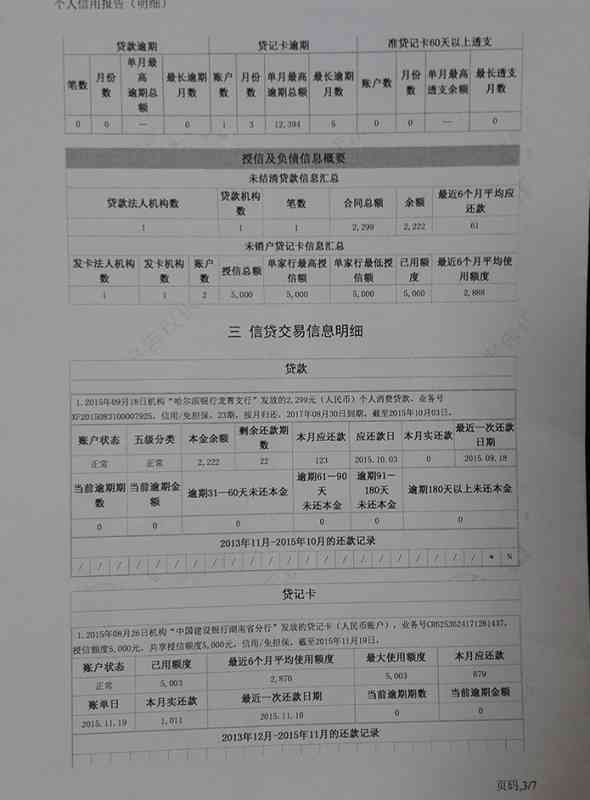 个人信用报告（明细）
贷款逾期 贷记卡逾期 准贷记卡60天以上透支
笔数 月份数 单月最高逾期总额 最长逾期月数 账户数 月份数 单月最高逾期总额 最长逾期月数 账户数 月份数 单月最高透支余额 最长透支月数
0 0 — 0 1 3 12,394 6 0 0 — 0
授信及负债信息概要
未结清贷款信息汇总
贷款法人机构数 贷款机构数 笔数 合同总额 余额 最近6个月平均应还款
1 1 1 2,299 2,222 61
未销户贷记卡信息汇总
发卡法人机构数 发卡机构数 账户数 授信总额 单家行最高授信额 单家行最低授信额 已用额度 最近6个月平均使用额度
1 1 2 5,000 5,000 5,000 5,000 2,888
三 信贷交易信息明细
贷款
1.2015年09月18日机构“哈尔滨银行龙青支行”发放的2,299元（人民币）个人消费贷款，业务号
XF2015083100007925，信用/免担保，23期，按月归还，2017年08月30日到期。截至2015年10月03日，
账户状态 五级分类 本金余额 剩余还款期数 本月应还款 应还款日 本月实还款 最近一次还款日期
正常 正常 2,222 22 123 2015.10.03 0 2015.09.18
当前逾期期数 当前逾期金额 逾期31—60天未还本金 逾期61—90天未还本金 逾期91—180天未还本金 逾期180天以上未还本金
0 0 0 0 0 0
2013年11月-2015年10月的还款记录
/ / / / / / / / / / / / / / / / / / / / / / * N
贷记卡
1.2015年08月26日机构“中国建设银行湖南省分行”发放的贷记卡（人民币账户），业务号CR6253624171281437，
授信额度5,000元，共享授信额度5,000元，信用/免担保。截至2015年11月19日，
账户状态 已用额度 最近6个月平均使用额度 最大使用额度 本月应还款
正常 5,003 2,870 5,003 879
账单日 本月实还款 最近一次还款日期 当前逾期期数 当前逾期金额
2015.11.19 1,011 2015.11.10 0 0
2013年12月-2015年11月的还款记录
页码,3/7